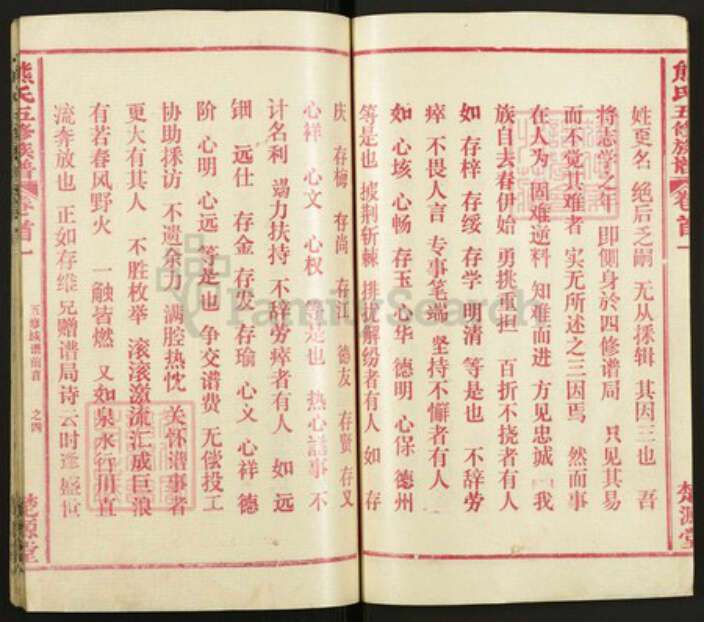 熊氏五修族谱
卷首一
楚源堂
姓更名 绝后乏嗣 无从採辑 其因三也 吾
将志学之年 即侧身於四修谱局 只见其易
而不觉其难者 实无所述之三因焉 然而事
在人为 固难逆料 知难而进 方见忠诚 我
族自去春伊始 勇挑重担 百折不挠者有人
如 存梓 存绥 存学 明清 等是也 不辞劳
瘁 不畏人言 专事笔端 坚持不懈者有人
如 心垓 心畅 存玉 心华 德明 心保 德州
等是也 披荆斩棘 排忧解纷者有人 如 存
庆 存梅 存尚 存江 德友 存贤 存义
心祥 心文 心权 等是也 热心谱事 不
计名利 竭力扶持 不辞劳瘁者有人 如 远
钿 远仕 存金 存发 存瑜 心义 心祥 德
阶 心明 心远 等是也 争交谱费 无偿投工
协助採访 不遗余力 满腔热忱 关怀谱事者
更大有其人 不胜枚举 滚滚激流汇成巨浪
有若春风野火 一触皆燃 又如泉水行川直
流奔放也 正如存维兄赠谱局诗云时逢盛世
五修族谱前言 之四
熊氏五修族谱
卷首一
楚源堂
FamilySearch